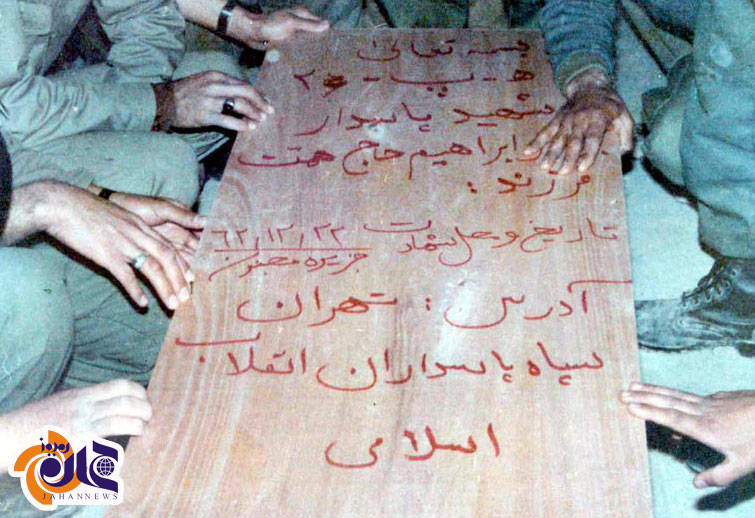 بسمه تعالی
ه - پ - ۲۶
شهید پاسدار
ابراهیم حاج همت
فرزند :
تاریخ و محل شهادت ۶۲/۱۲/۲۲
جزیره مجنون
آدرس : تهران
سپاه پاسداران انقلاب
اسلامی
جهان
امروز
JAHANNEWS